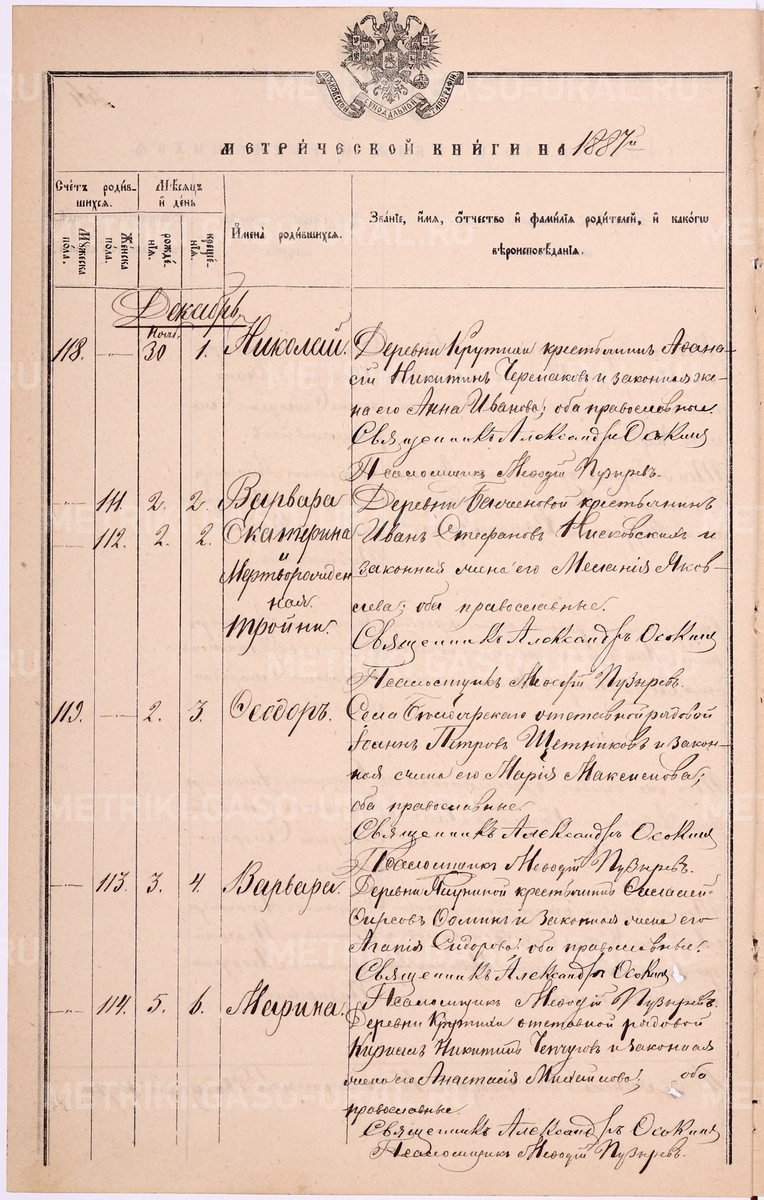 МОСКОВСКОЙ СѴНОДАЛЬНОЙ ТИПОГРАФІИ
МЕТРИ́ЧЕСКОЙ КНИ́ГИ НА 1887 й
Сче́тъ роди́вшихся.
Мꙋ́жеска по́ла.
Же́нска по́ла.
Мѣ́сяцъ и҆ день
рожде́нїѧ.
креще́нїѧ.
И҆мена̀ роди́вшихся.
Зва́нїе, и҆́мѧ, ѻ҆́тчество и҆ фами́лїѧ роди́телей, и҆ какѡ́гѡ вѣроисповѣ́данїѧ.
Декабрь
Нояб.
118. — 30 1. Николай. Деревни Крутихи крестьянинъ Аѳана-
сій Никитинъ Черепановъ и законная же-
на его Анна Иванова; оба православные.
Священникъ Александръ Осокинъ
Псаломщикъ Меѳодій Пузыревъ.
— 111. 2. 2. Варвара Деревни крестьянинъ
— 112. 2. 2. Екатерина Иванъ Стефановъ и
и
Мертворожден законная жена его Меланія Яков-
ная. лева; оба православные.
тройни. Священникъ Александръ Осокинъ
Псаломщикъ Меѳодій Пузыревъ.
119. — 2. 3. Ѳеодоръ. Села отставной рядовой
Іоаннъ Петровъ Щетниковъ и закон-
ная жена его Марія Максимова;
оба православные.
Священникъ Александръ Осокинъ
Псаломщикъ Меѳодій Пузыревъ.
— 113. 3. 4. Варвара. Деревни крестьянинъ
Ѳирсовъ Ѳоминъ и законная жена его
Агапія Сидорова; оба православные.
Священникъ Александръ Осокинъ
— 114. 5. 6. Марина. Псаломщикъ Меѳодій Пузыревъ.
Деревни Крутихи отставной рядовой
Кириллъ Никитинъ Чепчуговъ и законная
жена его Анастасія Михайлова; оба
православные.
Священникъ Александръ Осокинъ
Псаломщикъ Меѳодій Пузыревъ.
METRIKI.GASO-URAL.RU